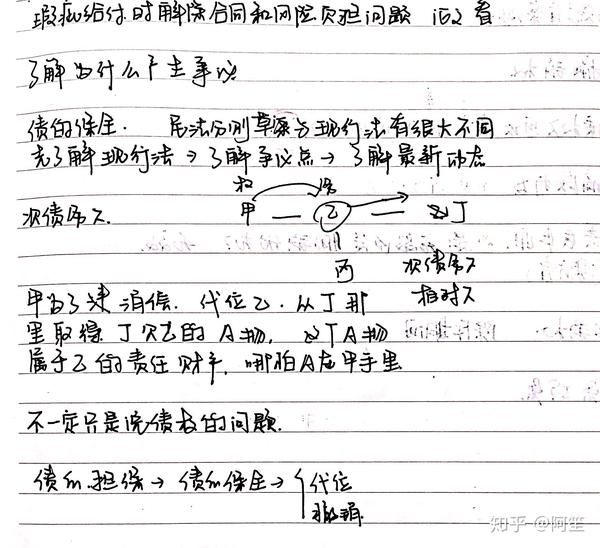 瑕疵给付时解除合同和风险负担问题 论文看
了解为什么产生争议
债的保全. 民法分则草案与现行法有很大不同
先了解现行法 → 了解争议点 → 了解最新动态
权 债
次债务人. 甲 — 乙 — 丁
丙 次债务人
相对人
甲为了清偿. 代位乙. 从丁那
里取得丁欠乙的A物, 这个A物
属于乙的责任财产, 哪怕A在甲手里
不一定只是债权的问题.
债的担保 → 债的保全 → { 代位
撤销
知乎 @阿笙